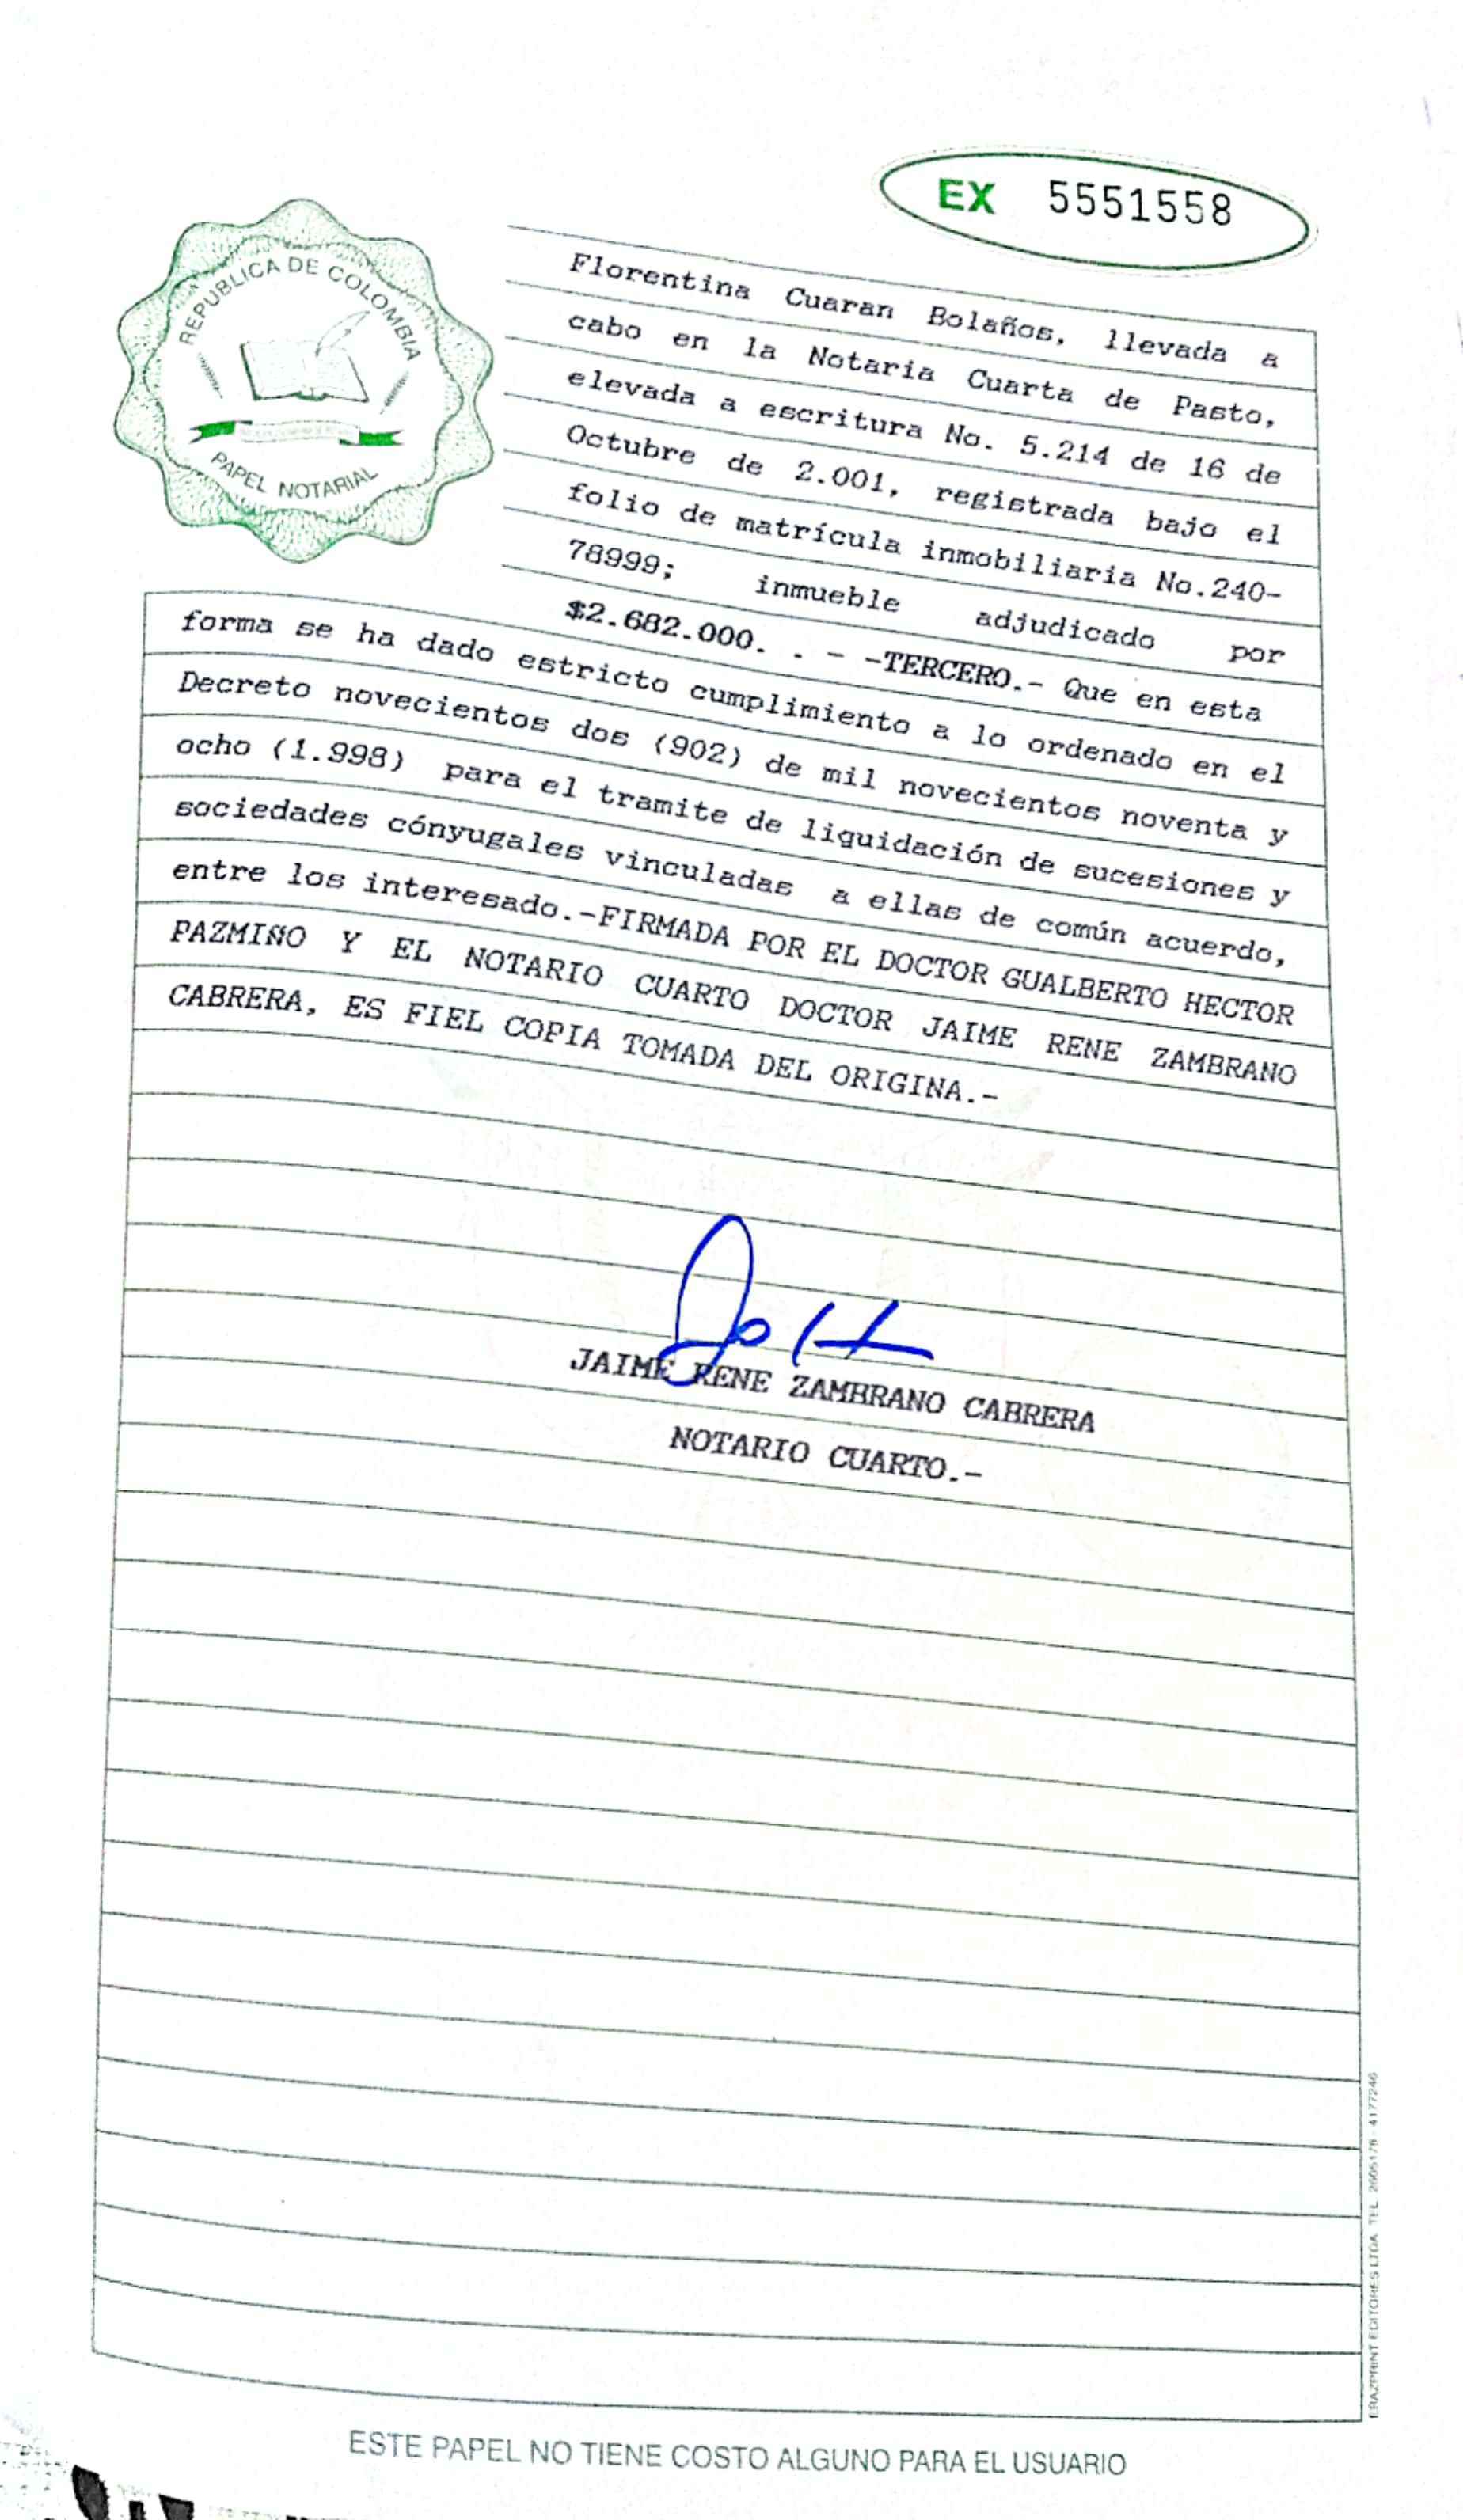 EX 5551558
REPUBLICA DE COLOMBIA
PAPEL NOTARIAL
Florentina Cuaran Bolaños, llevada a
cabo en la Notaria Cuarta de Pasto,
elevada a escritura No. 5.214 de 16 de
Octubre de 2.001, registrada bajo el
folio de matrícula inmobiliaria No.240-
78999; inmueble adjudicado por
$2.682.000. . - -TERCERO.- Que en esta
forma se ha dado estricto cumplimiento a lo ordenado en el
Decreto novecientos dos (902) de mil novecientos noventa y
ocho (1.998) para el tramite de liquidación de sucesiones y
sociedades cónyugales vinculadas a ellas de común acuerdo,
entre los interesado.-FIRMADA POR EL DOCTOR GUALBERTO HECTOR
PAZMIÑO Y EL NOTARIO CUARTO DOCTOR JAIME RENE ZAMBRANO
CABRERA, ES FIEL COPIA TOMADA DEL ORIGINA.-
JAIME RENE ZAMBRANO CABRERA
NOTARIO CUARTO.-
ERAZPRINT EDITORES LTDA. TEL. 2605178 - 4177246
ESTE PAPEL NO TIENE COSTO ALGUNO PARA EL USUARIO